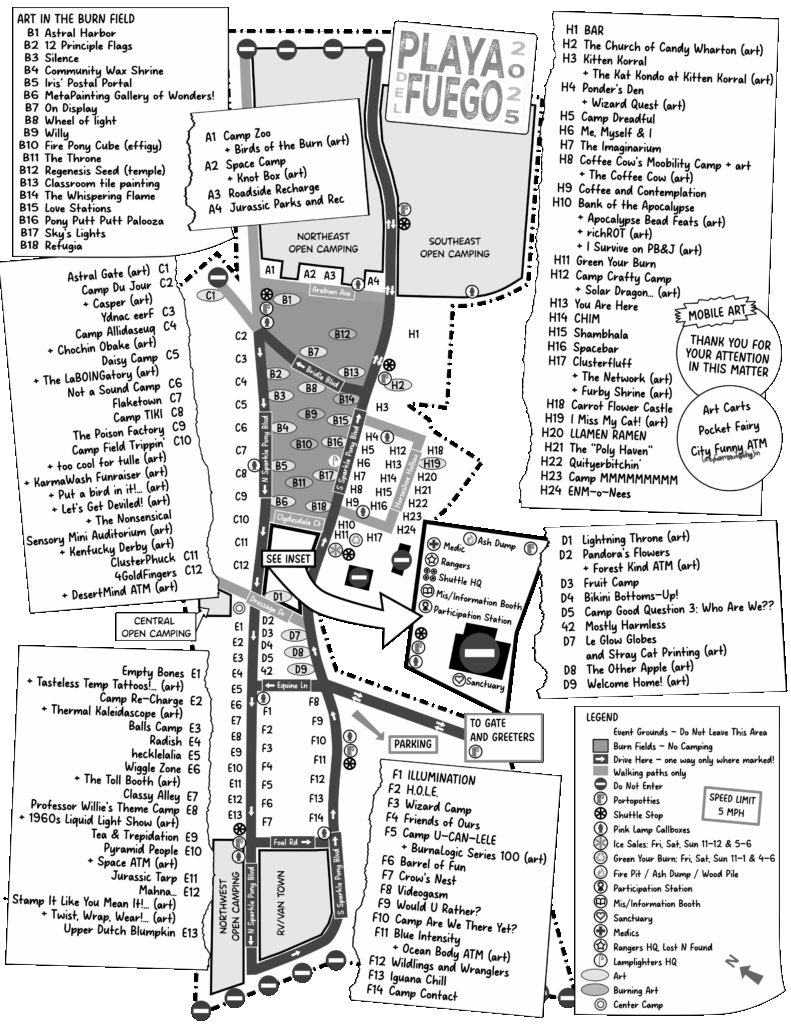 ART IN THE BURN FIELD
B1 Astral Harbor
B2 12 Principle Flags
B3 Silence
B4 Community Wax Shrine
B5 Iris' Postal Portal
B6 MetaPainting Gallery of Wonders!
B7 On Display
B8 Wheel of light
B9 Willy
B10 Fire Pony Cube (effigy)
B11 The Throne
B12 Regenesis Seed (temple)
B13 Classroom tile painting
B14 The Whispering Flame
B15 Love Stations
B16 Pony Putt Putt Palooza
B17 Sky's Lights
B18 Refugia
A1 Camp Zoo
+ Birds of the Burn (art)
A2 Space Camp
+ Knot Box (art)
A3 Roadside Recharge
A4 Jurassic Parks and Rec
PLAYA
DEL
FUEGO
2025
H1 BAR
H2 The Church of Candy Wharton (art)
H3 Kitten Korral
+ The Kat Kondo at Kitten Korral (art)
H4 Ponder's Den
+ Wizard Quest (art)
H5 Camp Dreadful
H6 Me, Myself & I
H7 The Imaginarium
H8 Coffee Cow's Moobility Camp + art
+ The Coffee Cow (art)
H9 Coffee and Contemplation
H10 Bank of the Apocalypse
+ Apocalypse Bead Feats (art)
+ richROT (art)
+ I Survive on PB&J (art)
H11 Green Your Burn
H12 Camp Crafty Camp
+ Solar Dragon... (art)
H13 You Are Here
H14 CHIM
H15 Shambhala
H16 Spacebar
H17 Clusterfluff
+ The Network (art)
+ Furby Shrine (art)
H18 Carrot Flower Castle
H19 I Miss My Cat! (art)
H20 LLAMEN RAMEN
H21 The "Poly Haven"
H22 Quityerbitchin'
H23 Camp MMMMMMMMM
H24 ENM-o-Nees
MOBILE ART
THANK YOU FOR
YOUR ATTENTION
IN THIS MATTER
Art Carts
Pocket Fairy
City Funny ATM
Astral Gate (art) C1
Camp Du Jour C2
+ Casper (art)
Ydnac eerf C3
Camp Allidaseuq C4
+ Chochin Obake (art)
Daisy Camp C5
+ The LaBOINGatory (art)
Not a Sound Camp C6
Flaketown C7
Camp TIKI C8
The Poison Factory C9
Camp Field Trippin' C10
+ too cool for tulle (art)
+ KarmaWash Funraiser (art)
+ Put a bird in it!... (art)
+ Let's Get Deviled! (art)
+ The Nonsensical
Sensory Mini Auditorium (art)
+ Kenfucky Derby (art)
ClusterPhuck C11
4GoldFingers C12
+ DesertMind ATM (art)
NORTHEAST
OPEN CAMPING
SOUTHEAST
OPEN CAMPING
A1
A2
A3
A4
Arabian Ave
C1
B1
C2
B12
H1
C3
B7
Bridle Blvd
B13
C4
B2
B8
B14
H2
C5
B3
B9
B15
H3
C6
B4
B10
B16
H4
H5
H12
H18
C7
N Sparkle Pony Blvd
S Sparkle Pony Blvd
H6
H13
H19
C8
B5
B17
H7
H14
H20
Horseshoe Hollow
B11
H8
H15
H21
C9
B6
B18
H9
H16
H22
C10
Clydesdale Ct
H10
H11
H17
H23
H24
C11
SEE INSET
C12
D1
Dressage Dr
CENTRAL
OPEN CAMPING
Medic
Ash Dump
Rangers
Shuttle HQ
Mis/Information Booth
Participation Station
Sanctuary
D1 Lightning Throne (art)
D2 Pandora's Flowers
+ Forest Kind ATM (art)
D3 Fruit Camp
D4 Bikini Bottoms-Up!
D5 Camp Good Question 3: Who Are We??
42 Mostly Harmless
D7 Le Glow Globes
and Stray Cat Printing (art)
D8 The Other Apple (art)
D9 Welcome Home! (art)
E1
D2
E2
D3
D7
E3
D4
D8
D5
E4
42
D9
E5
Equine Ln
E6
F1
F8
E7
F9
E8
F2
F10
E9
F3
F11
E10
F4
F12
E11
F5
F13
E12
F6
F14
E13
F7
Foal Rd
PARKING
TO GATE
AND GREETERS
NORTHWEST
OPEN CAMPING
N Sparkle Pony Blvd
RV/VAN TOWN
S Sparkle Pony Blvd
Empty Bones E1
+ Tasteless Temp Tattoos!... (art)
Camp Re-Charge E2
+ Thermal Kaleidascope (art)
Balls Camp E3
Radish E4
hecklelalia E5
Wiggle Zone E6
+ The Toll Booth (art)
Classy Alley E7
Professor Willie's Theme Camp E8
+ 1960s Liquid Light Show (art)
Tea & Trepidation E9
Pyramid People E10
+ Space ATM (art)
Jurassic Tarp E11
Mahna... E12
+ Stamp It Like You Mean It!... (art)
+ Twist, Wrap, Wear!... (art)
Upper Dutch Blumpkin E13
F1 ILLUMINATION
F2 H.O.L.E.
F3 Wizard Camp
F4 Friends of Ours
F5 Camp U-CAN-LELE
+ BurnaLogic Series 100 (art)
F6 Barrel of Fun
F7 Crow's Nest
F8 Videogasm
F9 Would U Rather?
F10 Camp Are We There Yet?
F11 Blue Intensity
+ Ocean Body ATM (art)
F12 Wildlings and Wranglers
F13 Iguana Chill
F14 Camp Contact
LEGEND
Event Grounds - Do Not Leave This Area
Burn Fields - No Camping
Drive Here - one way only where marked!
Walking paths only
Do Not Enter
Portopotties
Shuttle Stop
SPEED LIMIT
5 MPH
Pink Lamp Callboxes
Ice Sales: Fri, Sat, Sun 11-12 & 5-6
Green Your Burn: Fri, Sat, Sun 11-1 & 4-6
Fire Pit / Ash Dump / Wood Pile
Participation Station
Mis/Information Booth
Sanctuary
Medics
Rangers HQ, Lost N Found
Lamplighters HQ
Art
Burning Art
Center Camp
N